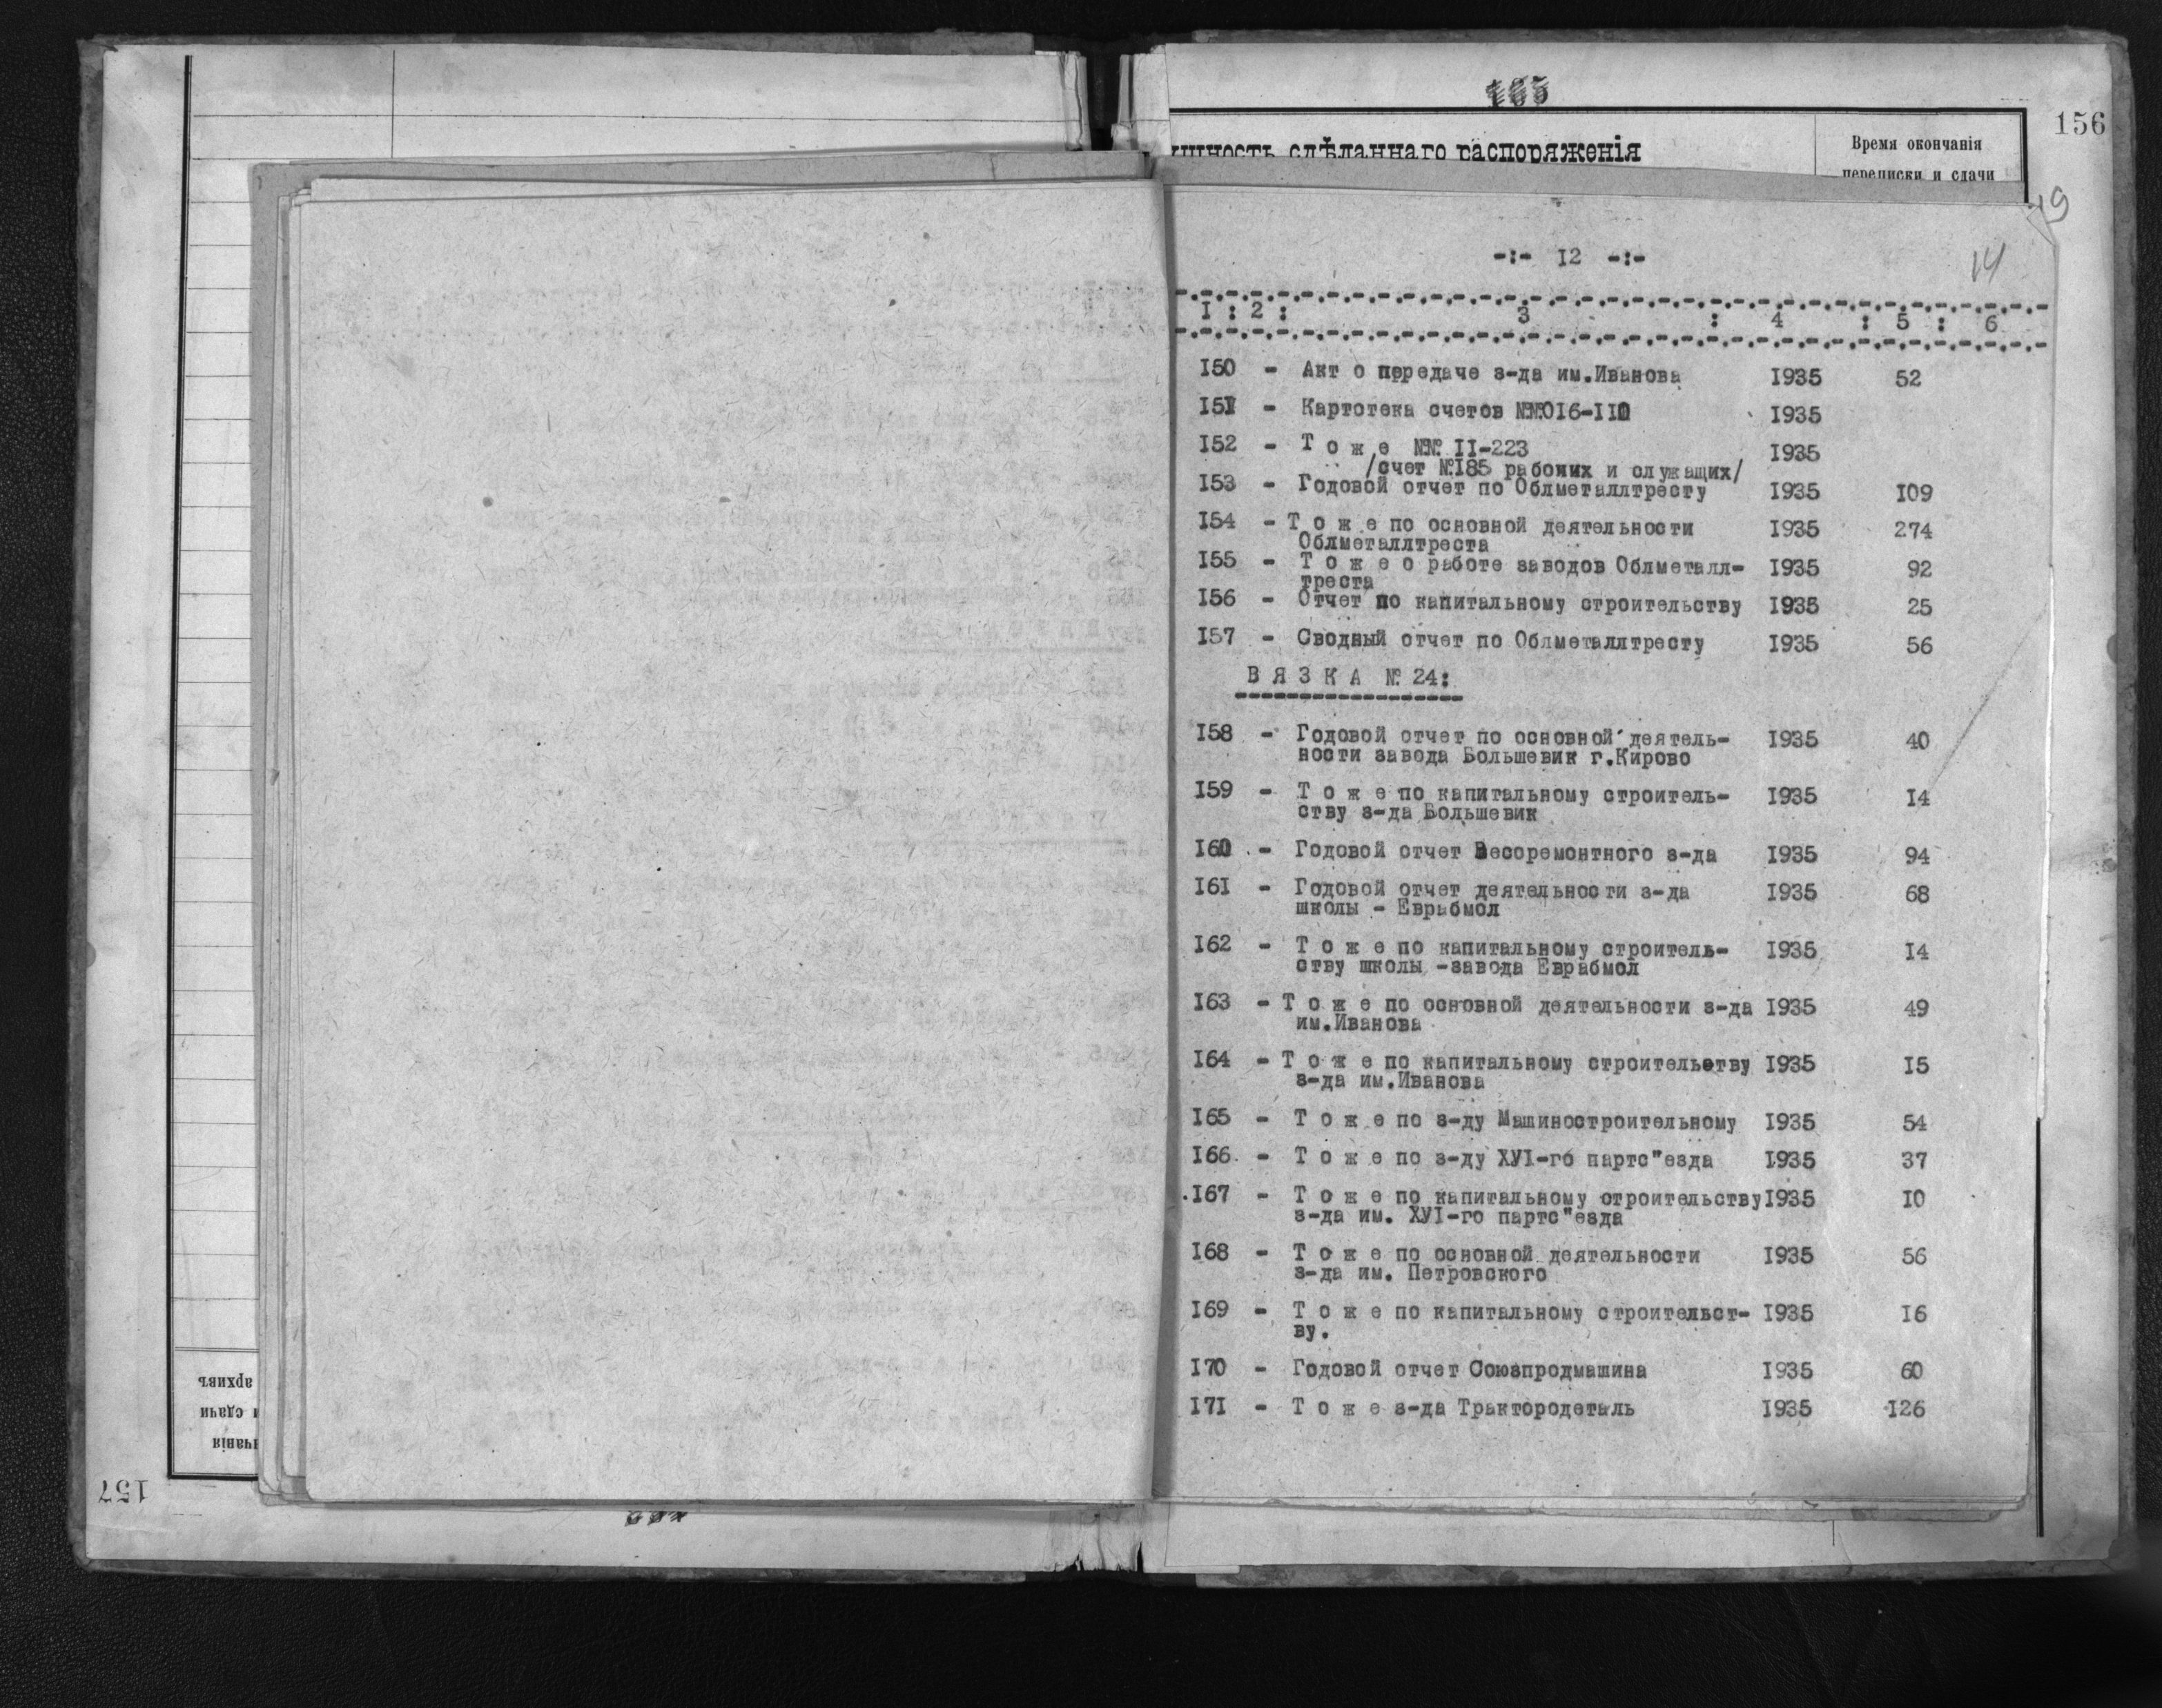 156
ущность сдѣланнаго распоряженія
Время окончанія
переписки и сдачи
19
14
-:- I2 -:-
I : 2 : 3 : 4 : 5 : 6
I50 - Акт о передаче з-да им.Иванова 1935 52
I5I - Картотека счетов №№016-110 1935
I52 - Т о ж е №№ II-223 1935
/счет №I85 рабочих и служащих/
I53 - Годовой отчет по Облметаллтресту 1935 I09
I54 - Т о ж е по основной деятельности 1935 274
Облметаллтреста
I55 - Т о ж е о работе заводов Облметалл- 1935 92
треста
I56 - Отчет по капитальному строительству 1935 25
I57 - Сводный отчет по Облметаллтресту 1935 56
В Я З К А № 24:
I58 - Годовой отчет по основной деятель- 1935 40
ности завода Большевик г.Кирово
I59 - Т о ж е по капитальному строитель- 1935 I4
ству з-да Большевик
I60 - Годовой отчет Весоремонтного з-да 1935 94
I6I - Годовой отчет деятельности з-да 1935 68
школы - Еврабмол
I62 - Т о ж е по капитальному строитель- 1935 I4
ству школы -завода Еврабмол
I63 - Т о ж е по основной деятельности з-да 1935 49
им.Иванова
I64 - Т о ж е по капитальному строительству 1935 I5
з-да им.Иванова
I65 - Т о ж е по з-ду Машиностроительному 1935 54
I66 - Т о ж е по з-ду ХУI-го партс"езда 1935 37
I67 - Т о ж е по капитальному строительству 1935 I0
з-да им. ХУI-го партс"езда
I68 - Т о ж е по основной деятельности 1935 56
з-да им. Петровского
I69 - Т о ж е по капитальному строительст- 1935 I6
ву.
I70 - Годовой отчет Союзпродмашина 1935 60
I7I - Т о ж е з-да Трактородеталь 1935 I26
архивъ
и сдачи
нчанія
157